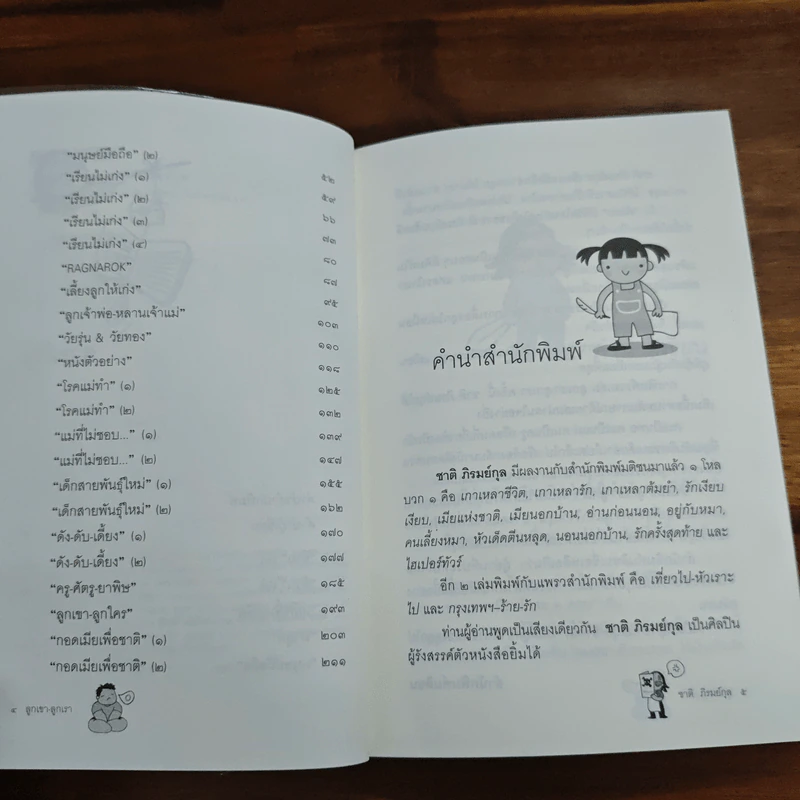 "มนุษย์มือถือ" (๒)
"เรียนไม่เก่ง" (๑) ๕๒
"เรียนไม่เก่ง" (๒) ๕๙
"เรียนไม่เก่ง" (๓) ๖๖
"เรียนไม่เก่ง" (๔) ๗๓
"RAGNAROK" ๘๐
"เลี้ยงลูกให้เก่ง" ๘๗
"ลูกเจ้าพ่อ-หลานเจ้าแม่" ๙๕
"วัยรุ่น & วัยทอง" ๑๐๓
"หนังตัวอย่าง" ๑๑๐
"โรคแม่ทำ" (๑) ๑๑๘
"โรคแม่ทำ" (๒) ๑๒๕
"แม่ที่ไม่ชอบ..." (๑) ๑๓๒
"แม่ที่ไม่ชอบ..." (๒) ๑๓๙
"เด็กสายพันธุ์ใหม่" (๑) ๑๔๗
"เด็กสายพันธุ์ใหม่" (๒) ๑๕๕
"ดัง-ดับ-เดี้ยง" (๑) ๑๖๒
"ดัง-ดับ-เดี้ยง" (๒) ๑๗๐
"ครู-ศัตรู-ยาพิษ" ๑๗๗
"ลูกเขา-ลูกใคร" ๑๘๕
"กอดเมียเพื่อชาติ" (๑) ๑๙๓
"กอดเมียเพื่อชาติ" (๒) ๒๐๓
๒๑๑
๔ ลูกเขา-ลูกเรา
คำนำสำนักพิมพ์
ชาติ ภิรมย์กุล มีผลงานกับสำนักพิมพ์มติชนมาแล้ว ๑ โหล
บวก ๑ คือ เกาเหลาชีวิต, เกาเหลารัก, เกาเหลาต้มยำ, รักเงียบ
เงียบ, เมียแห่งชาติ, เมียนอกบ้าน, อ่านก่อนนอน, อยู่กับหมา,
คนเลี้ยงหมา, หัวเด็ดตีนหลุด, นอนนอกบ้าน, รักครั้งสุดท้าย และ
ไฮเปอร์ทัวร์
อีก ๒ เล่มพิมพ์กับแพรวสำนักพิมพ์ คือ เที่ยวไป-หัวเราะ
ไป และ กรุงเทพฯ-ร้าย-รัก
ท่านผู้อ่านพูดเป็นเสียงเดียวกัน ชาติ ภิรมย์กุล เป็นศิลปิน
ผู้รังสรรค์ตัวหนังสือยิ้มได้
ชาติ ภิรมย์กุล ๕